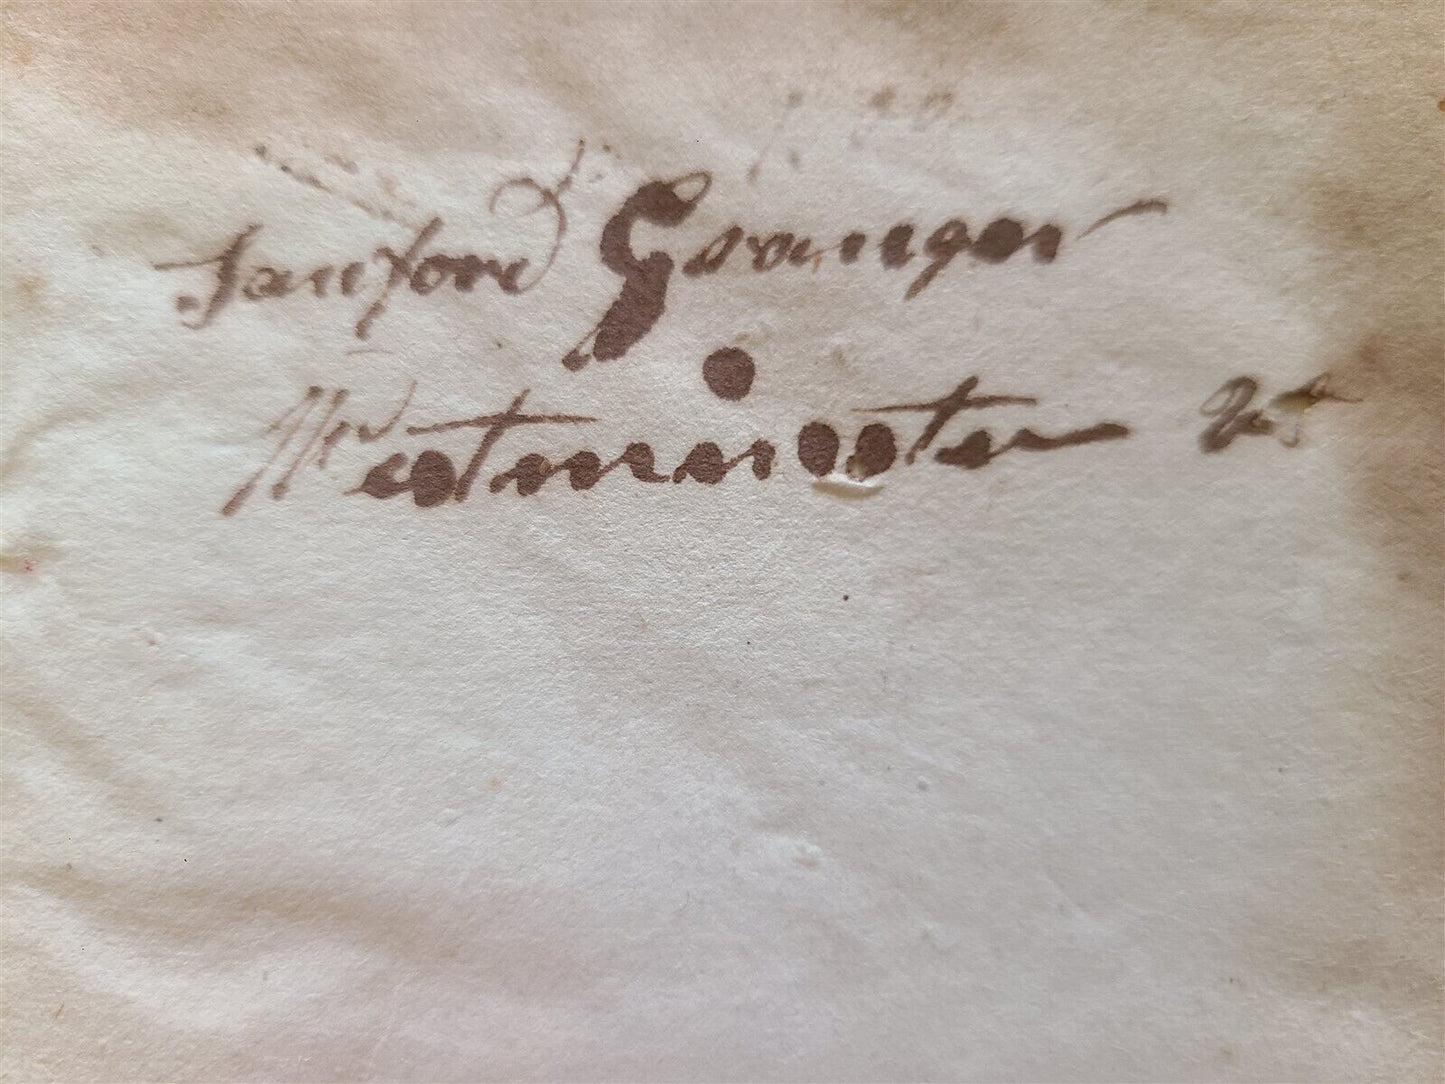 Sanford Granger
Westminster Vt